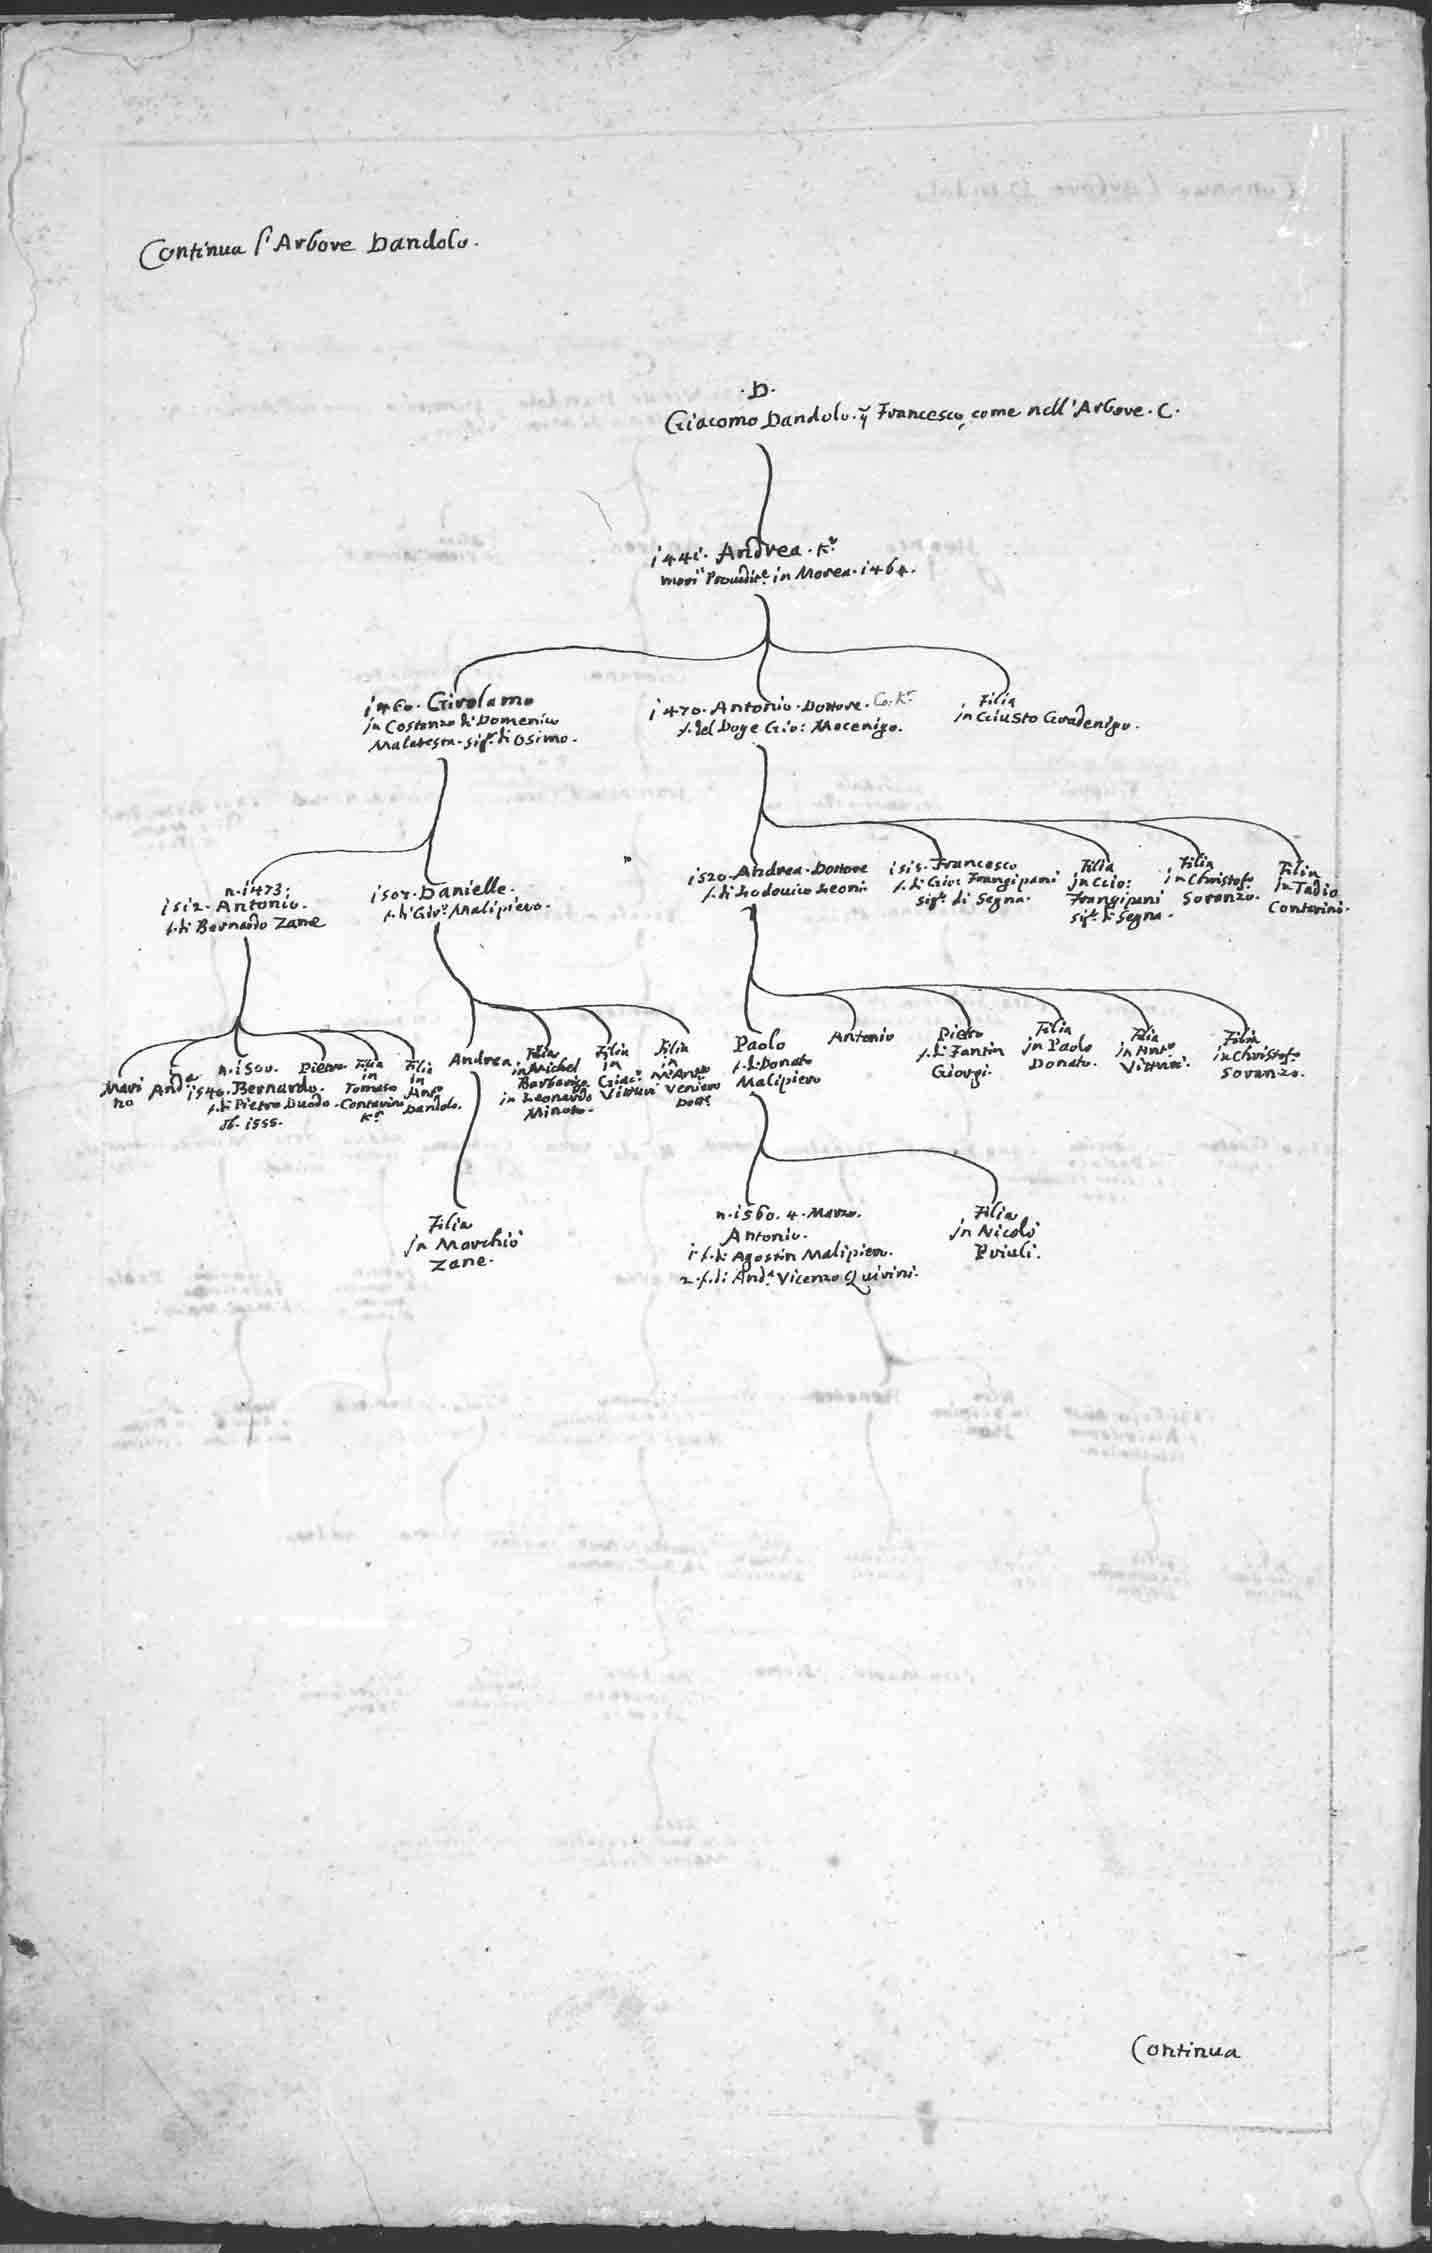 Continua l'Arbore Dandolo.
·D·
Giacomo Dandolo. q Francesco, come nell'Arbore. C.
1441. Andrea. Kr
morì Proveditr in Morea. 1464.
1460. Girolamo
in Costanza di Domenico
Malatesta. sigr di Osimo.
1470. Antonio. Dottore. Co: Kr
f. del Doge Gio: Mocenigo.
Filia
in Giusto Gradenigo.
n. 1473.
1512. Antonio.
f. di Bernardo Zane
1507. Danielle.
f. di Gio: Malipiero.
1520. Andrea. Dottore
f. di Lodovico Leoni
1515. Francesco
f. di Gio: Frangipani
sigr di Segna.
Filia
in Gio:
Frangipani
sigr di Segna.
Filia
in Christofo
Soranzo.
Filia
in Tadio
Contarini.
Mari
no
Anda
n. 1500.
1540. Bernardo.
f. di Pietro Duodo.
ob. 1555.
Pietro
Filia
in
Tomaso
Contarini
Kr
Filia
in
Anto
Dandolo.
Andrea.
Filia
in Michel
Barbarigo
in Leonardo
Minoto.
Filia
in
Giaco
Vitturi
Filia
in
M. Anto
Veniero
Dottr
Paolo
f. di Donato
Malipiero
Antonio
Pietro
f. di Fantin
Giorgi.
Filia
in Paolo
Donato.
Filia
in Anto
Vitturi.
Filia
in Christofo
Soranzo.
Filia
in Marchiò
Zane.
n. 1560. 4. Marzo.
Antonio.
1 f. di Agostin Malipiero.
2. f. di Anda Vicenzo Quirini.
Filia
in Nicolò
Priuli.
Continua